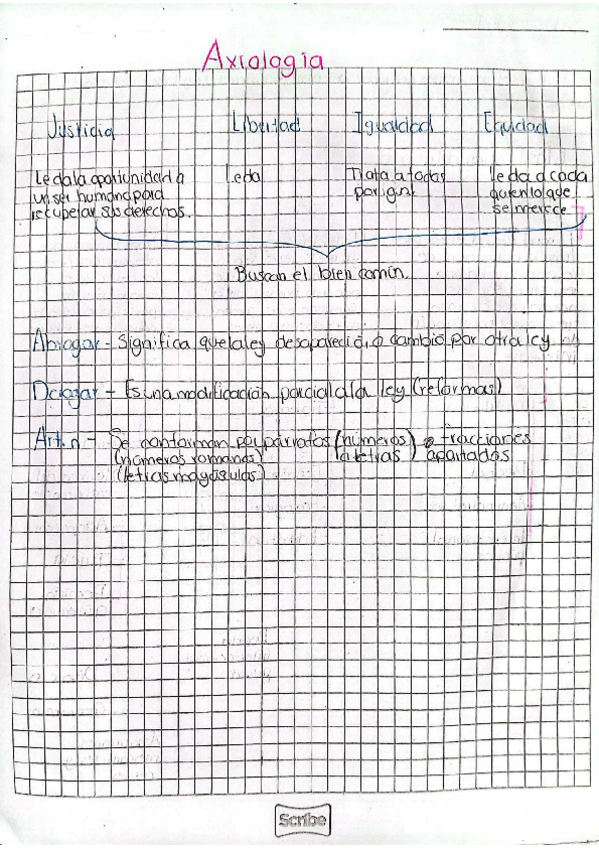 Axiología
Justicia Libertad Igualdad Equidad
Le da la oportunidad a un ser humano para recuperar sus derechos.
Le da
Trata a todos por igual
le da a cada quien lo que se merece
Buscan el bien común.
Abrogar - Significa que la ley desapareció, o cambio por otra ley
Derogar - Es una modificación parcial a la ley (reformas)
Art. n. - Se conforman por párrafos (números) o fracciones
(números romanos) (letras) apartados
(letras mayúsculas)
Scribe